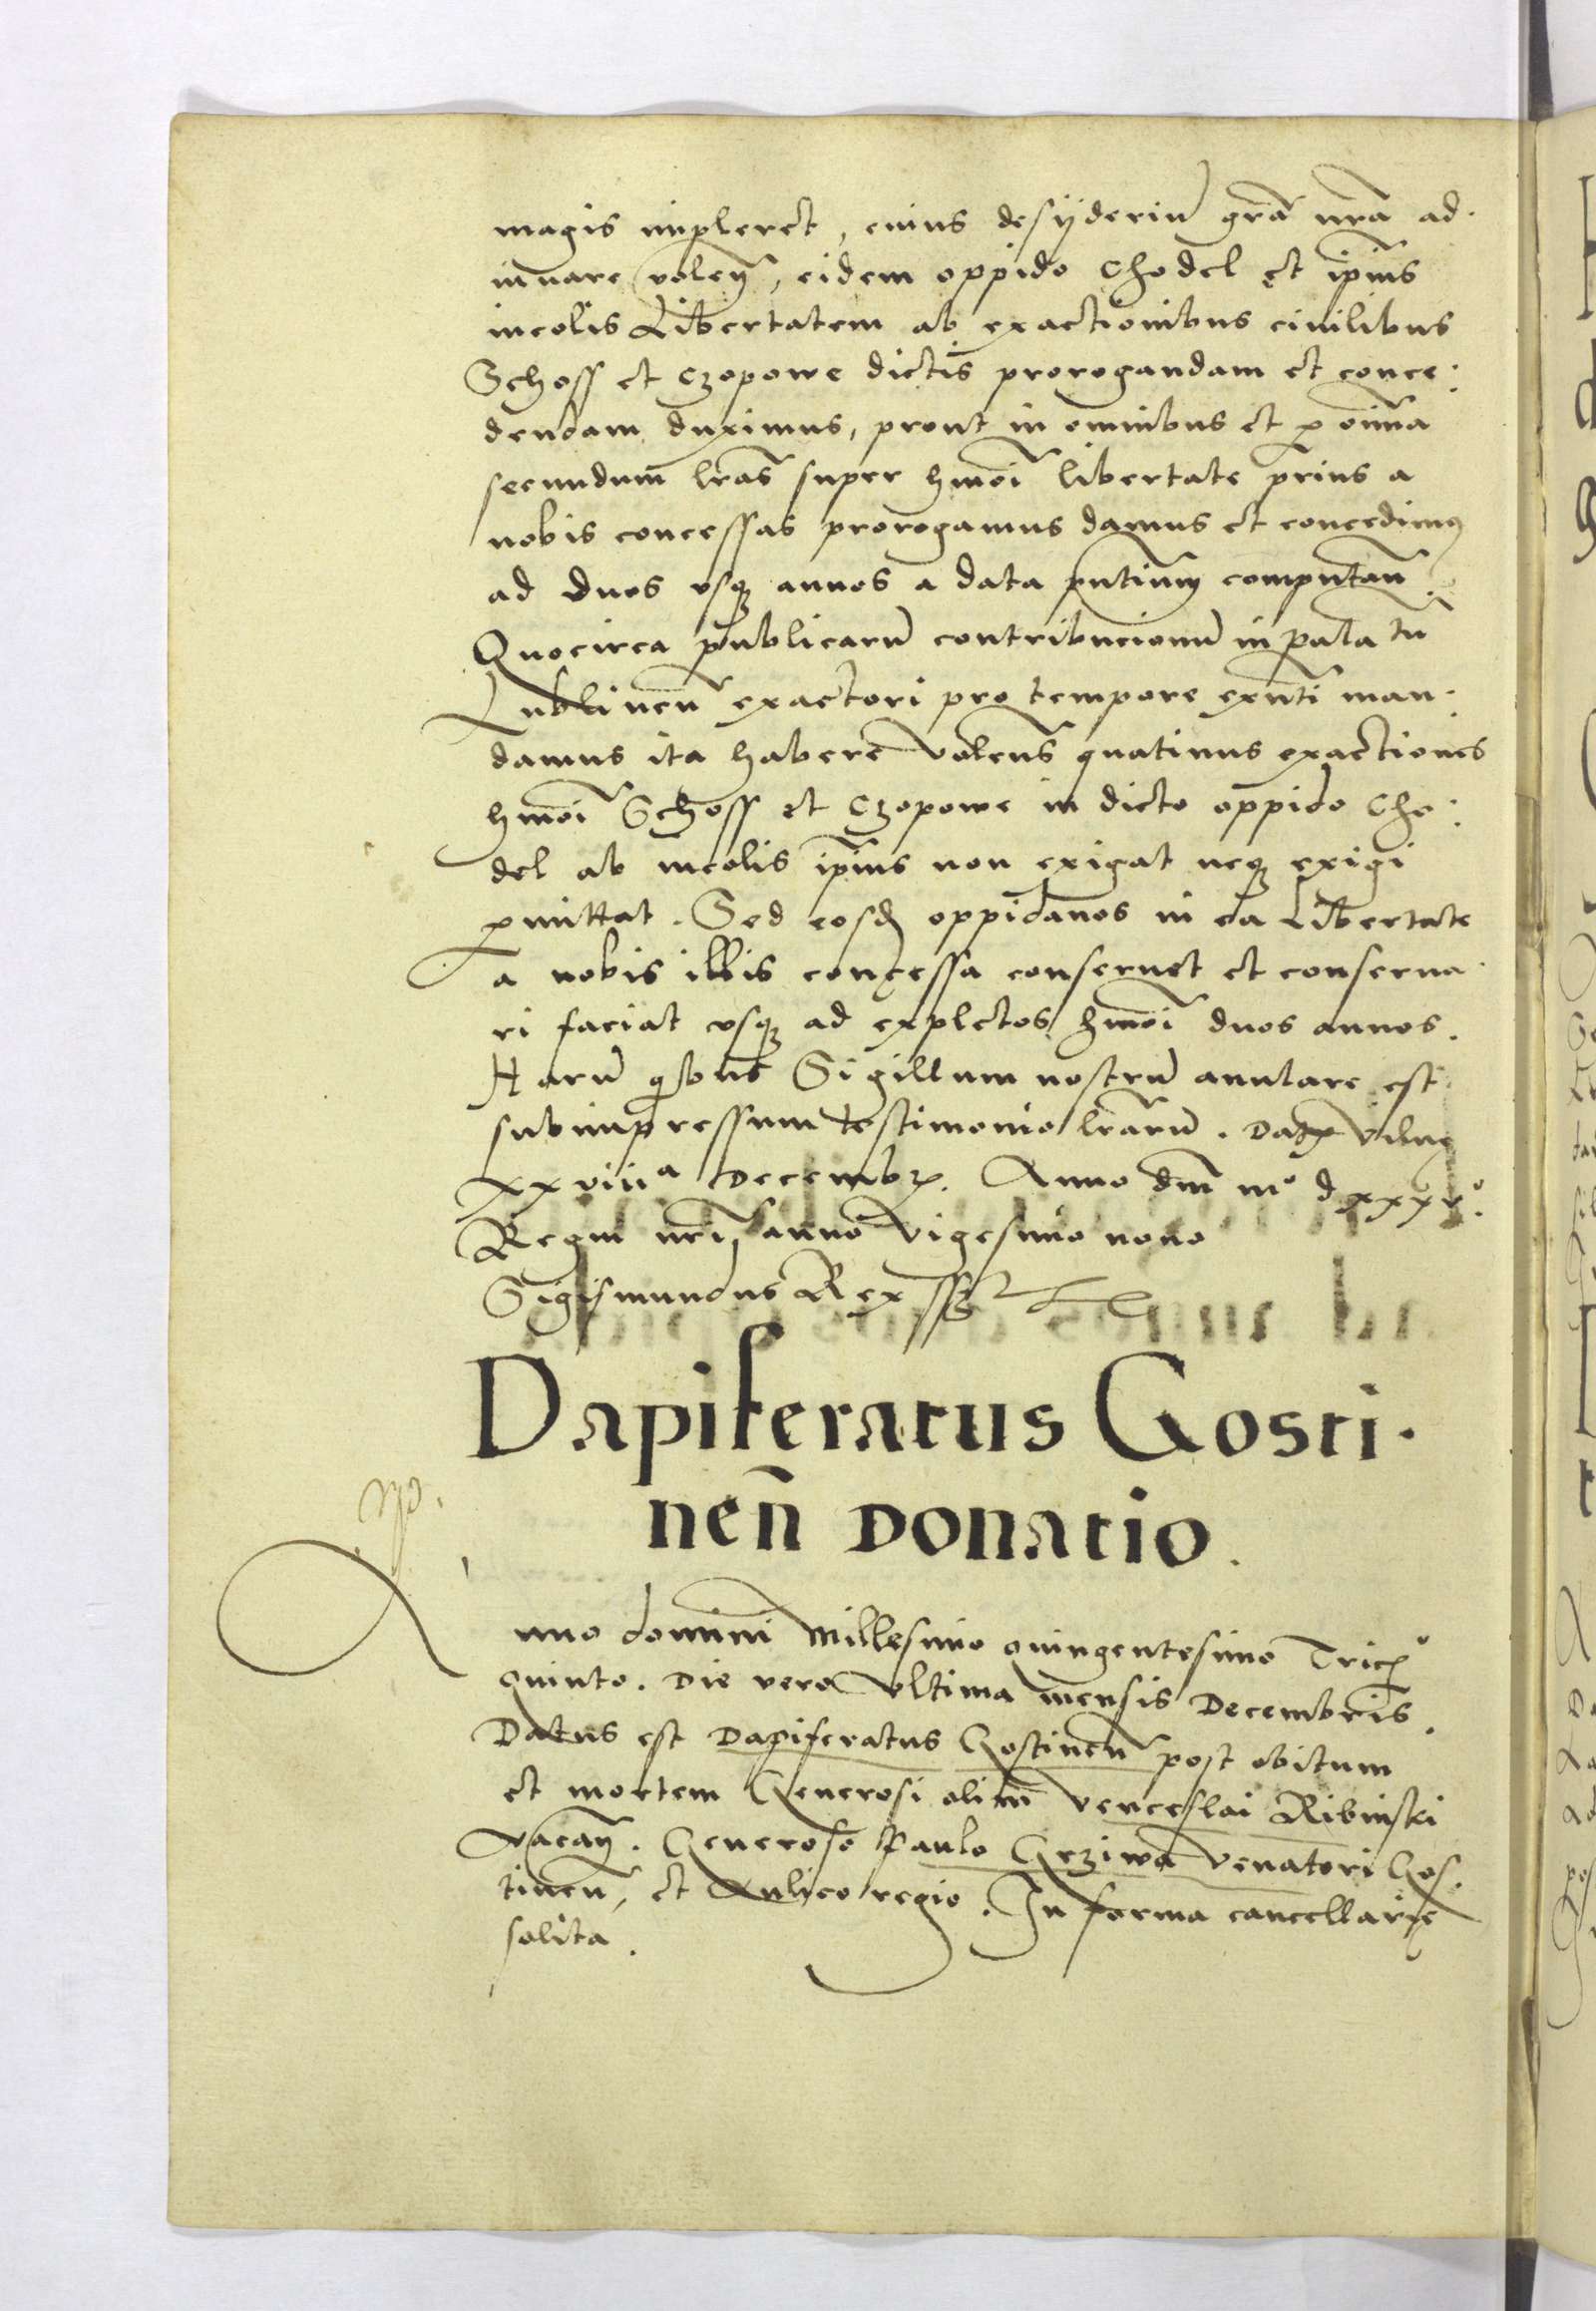 magis impleret, cuius desyderiũ grã nrã ad
iuuare volen̄, eidem oppido Chodel et ip̃ius
incolis Libertatem ab exactionibus ciuilibus
Schoss et Czopowe dictis prorogandam et conce:
dendam duximus, prout in omnibus et p om̃ia
secundum lras̃ super hmõi libertate prius a
nobis concessas prorogamus damus et concedimꝰ
ad duos vsqꝫ annos a data pn̄tium computan̄.
Quocirca publicarũ contribucionũ in pala tu
Lublinen̄ exactori pro tempore exn̄ti man
damus ita habere volens̃ quatinus exactiones
hmõi Schoss et Czopowe in dicto oppido Cho:
del ab incolis ip̃ius non exigat neqꝫ exigi
pmittat. Sed eosd̃ oppidanos in ea Libertate
a nobis illis concessa conseruet et conserua
ri faciat vsqꝫ ad expletos hmõi duos annos.
Harũ qibus Sigillum nostrũ anulare est
subimpressum testimonio lrarũ. Datꝫ Vilnę
xxviiiᵃ Decembꝝ. Anno dñi mº dxxxvº.
Regni nr̃i anno vigesimo nono
Sigismundus Rex ssꝫ
Dapiferatus Gosti
nen̄ Donatio.
Anno domini Millesimo quingentesimo Tricꝫº
quinto. Die vero vltima mensis Decembris.
Datus est Dapiferatus Gostinen̄ post obitum
et mortem Generosi olim Venceslai Ribinski
vacan̄. Generoso Paulo Grziwa Venatori Gos
tinen̄, et Aulico regio. In forma cancellarię
solita.